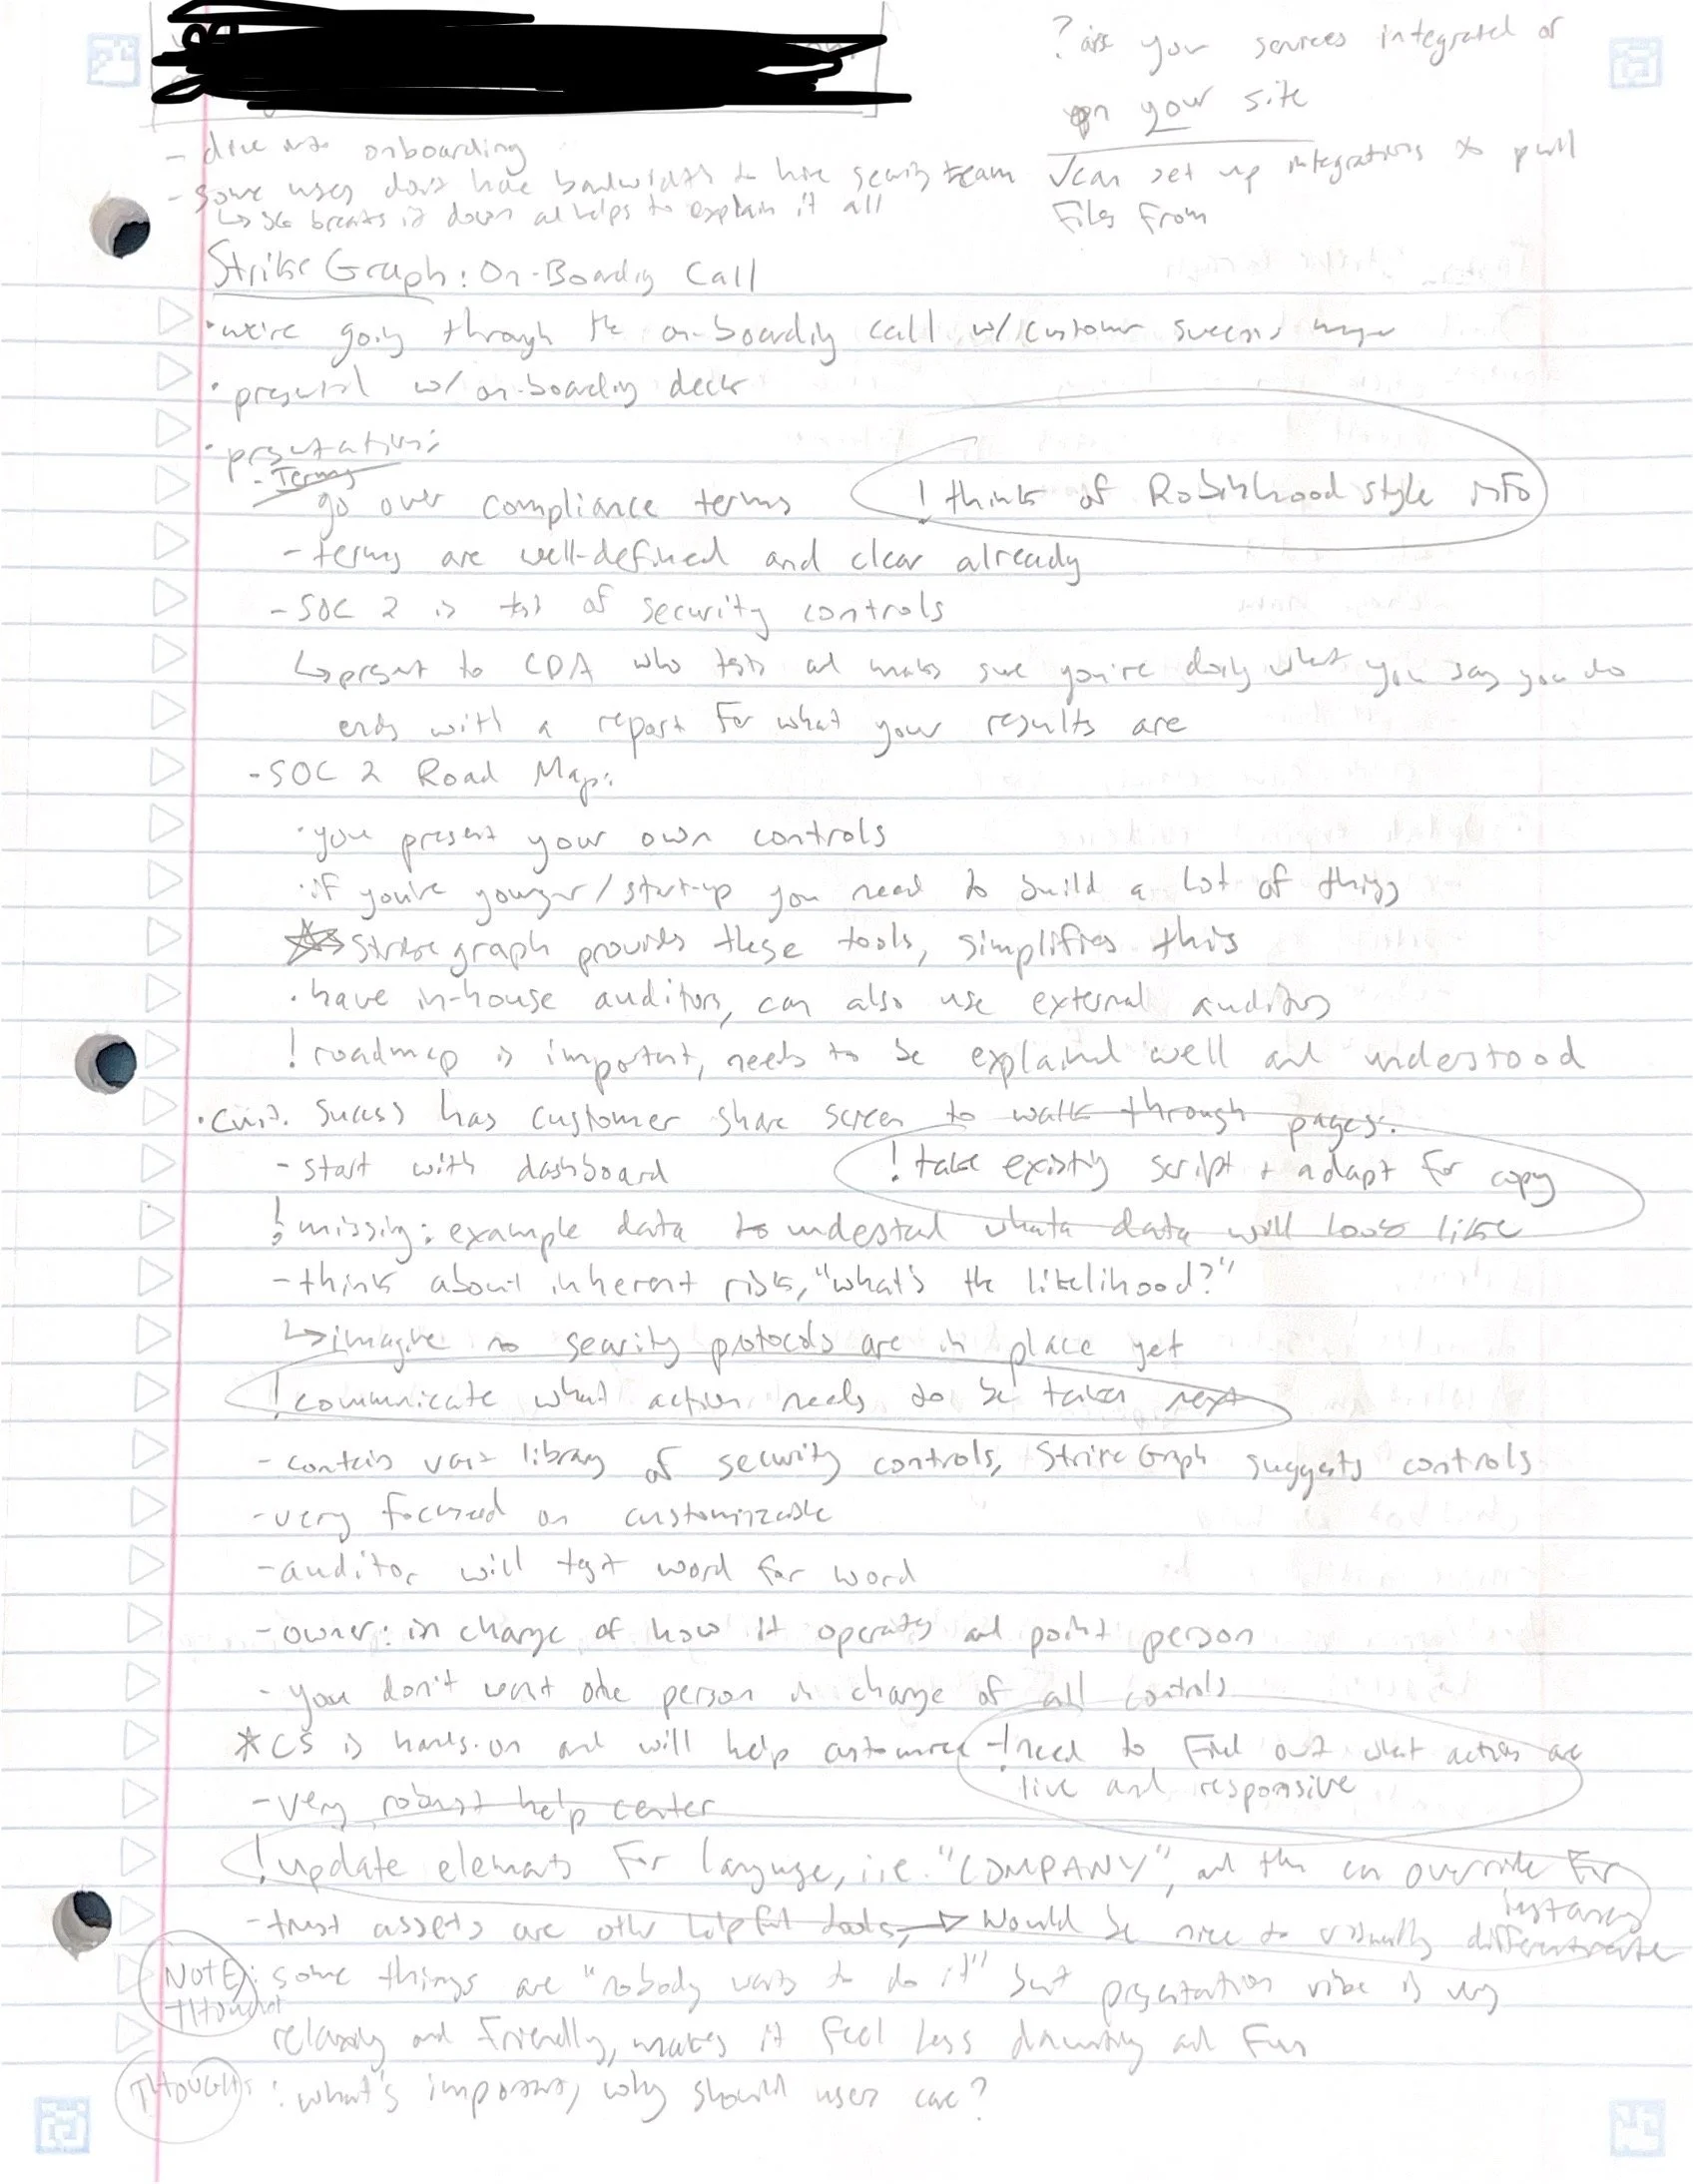 ? are your services integrated or
on your site
√can set up integrations to pull
files from
- dive into onboarding
- some users don't have bandwidth to have security team
↳ SG breaks it down and helps to explain it all
Strike Graph: On-Boarding Call
• we're going through the on-boarding call w/customer success
• present w/ on-boarding deck
• presentation:
- Terms
go over compliance terms
! think of Robinhood style info
- terms are well-defined and clear already
- SOC 2 is test of security controls
↳ present to CPA who tests and makes sure you're doing what you say you do
ends with a report for what your results are
- SOC 2 Road Map:
• you present your own controls
• if you're younger/start-up you need to build a lot of things
☆ Strike graph provides these tools, simplifies this
• have in-house auditors, can also use external auditors
! roadmap is important, needs to be explained well and understood
• Cust. Success has customer share screen to walk through pages:
- start with dashboard
! take existing script + adapt for copy
! missing: example data to understand what data will look like
- think about inherent risk, "what's the likelihood?"
↳ imagine no security protocols are in place yet
! communicate what action needs to be taken next
- contains vast library of security controls, Strike Graph suggests controls
- very focused on customizable
- auditor will test word for word
- owner: in charge of how it operates and point person
- you don't want one person in charge of all controls
* CS is hands-on and will help customer
! need to find out what actions are
live and responsive
- very robust help center
! update elements for language, i.e. "COMPANY", and then can override for
instances
- trust assets are other helpful tools, → Would be nice to visually differentiate
NOTE: some things are "nobody wants to do it" but presentation vibe is very
THOUGHT
relaxed and friendly, makes it feel less daunting and fun
THOUGHTS: what's important, why should users care?